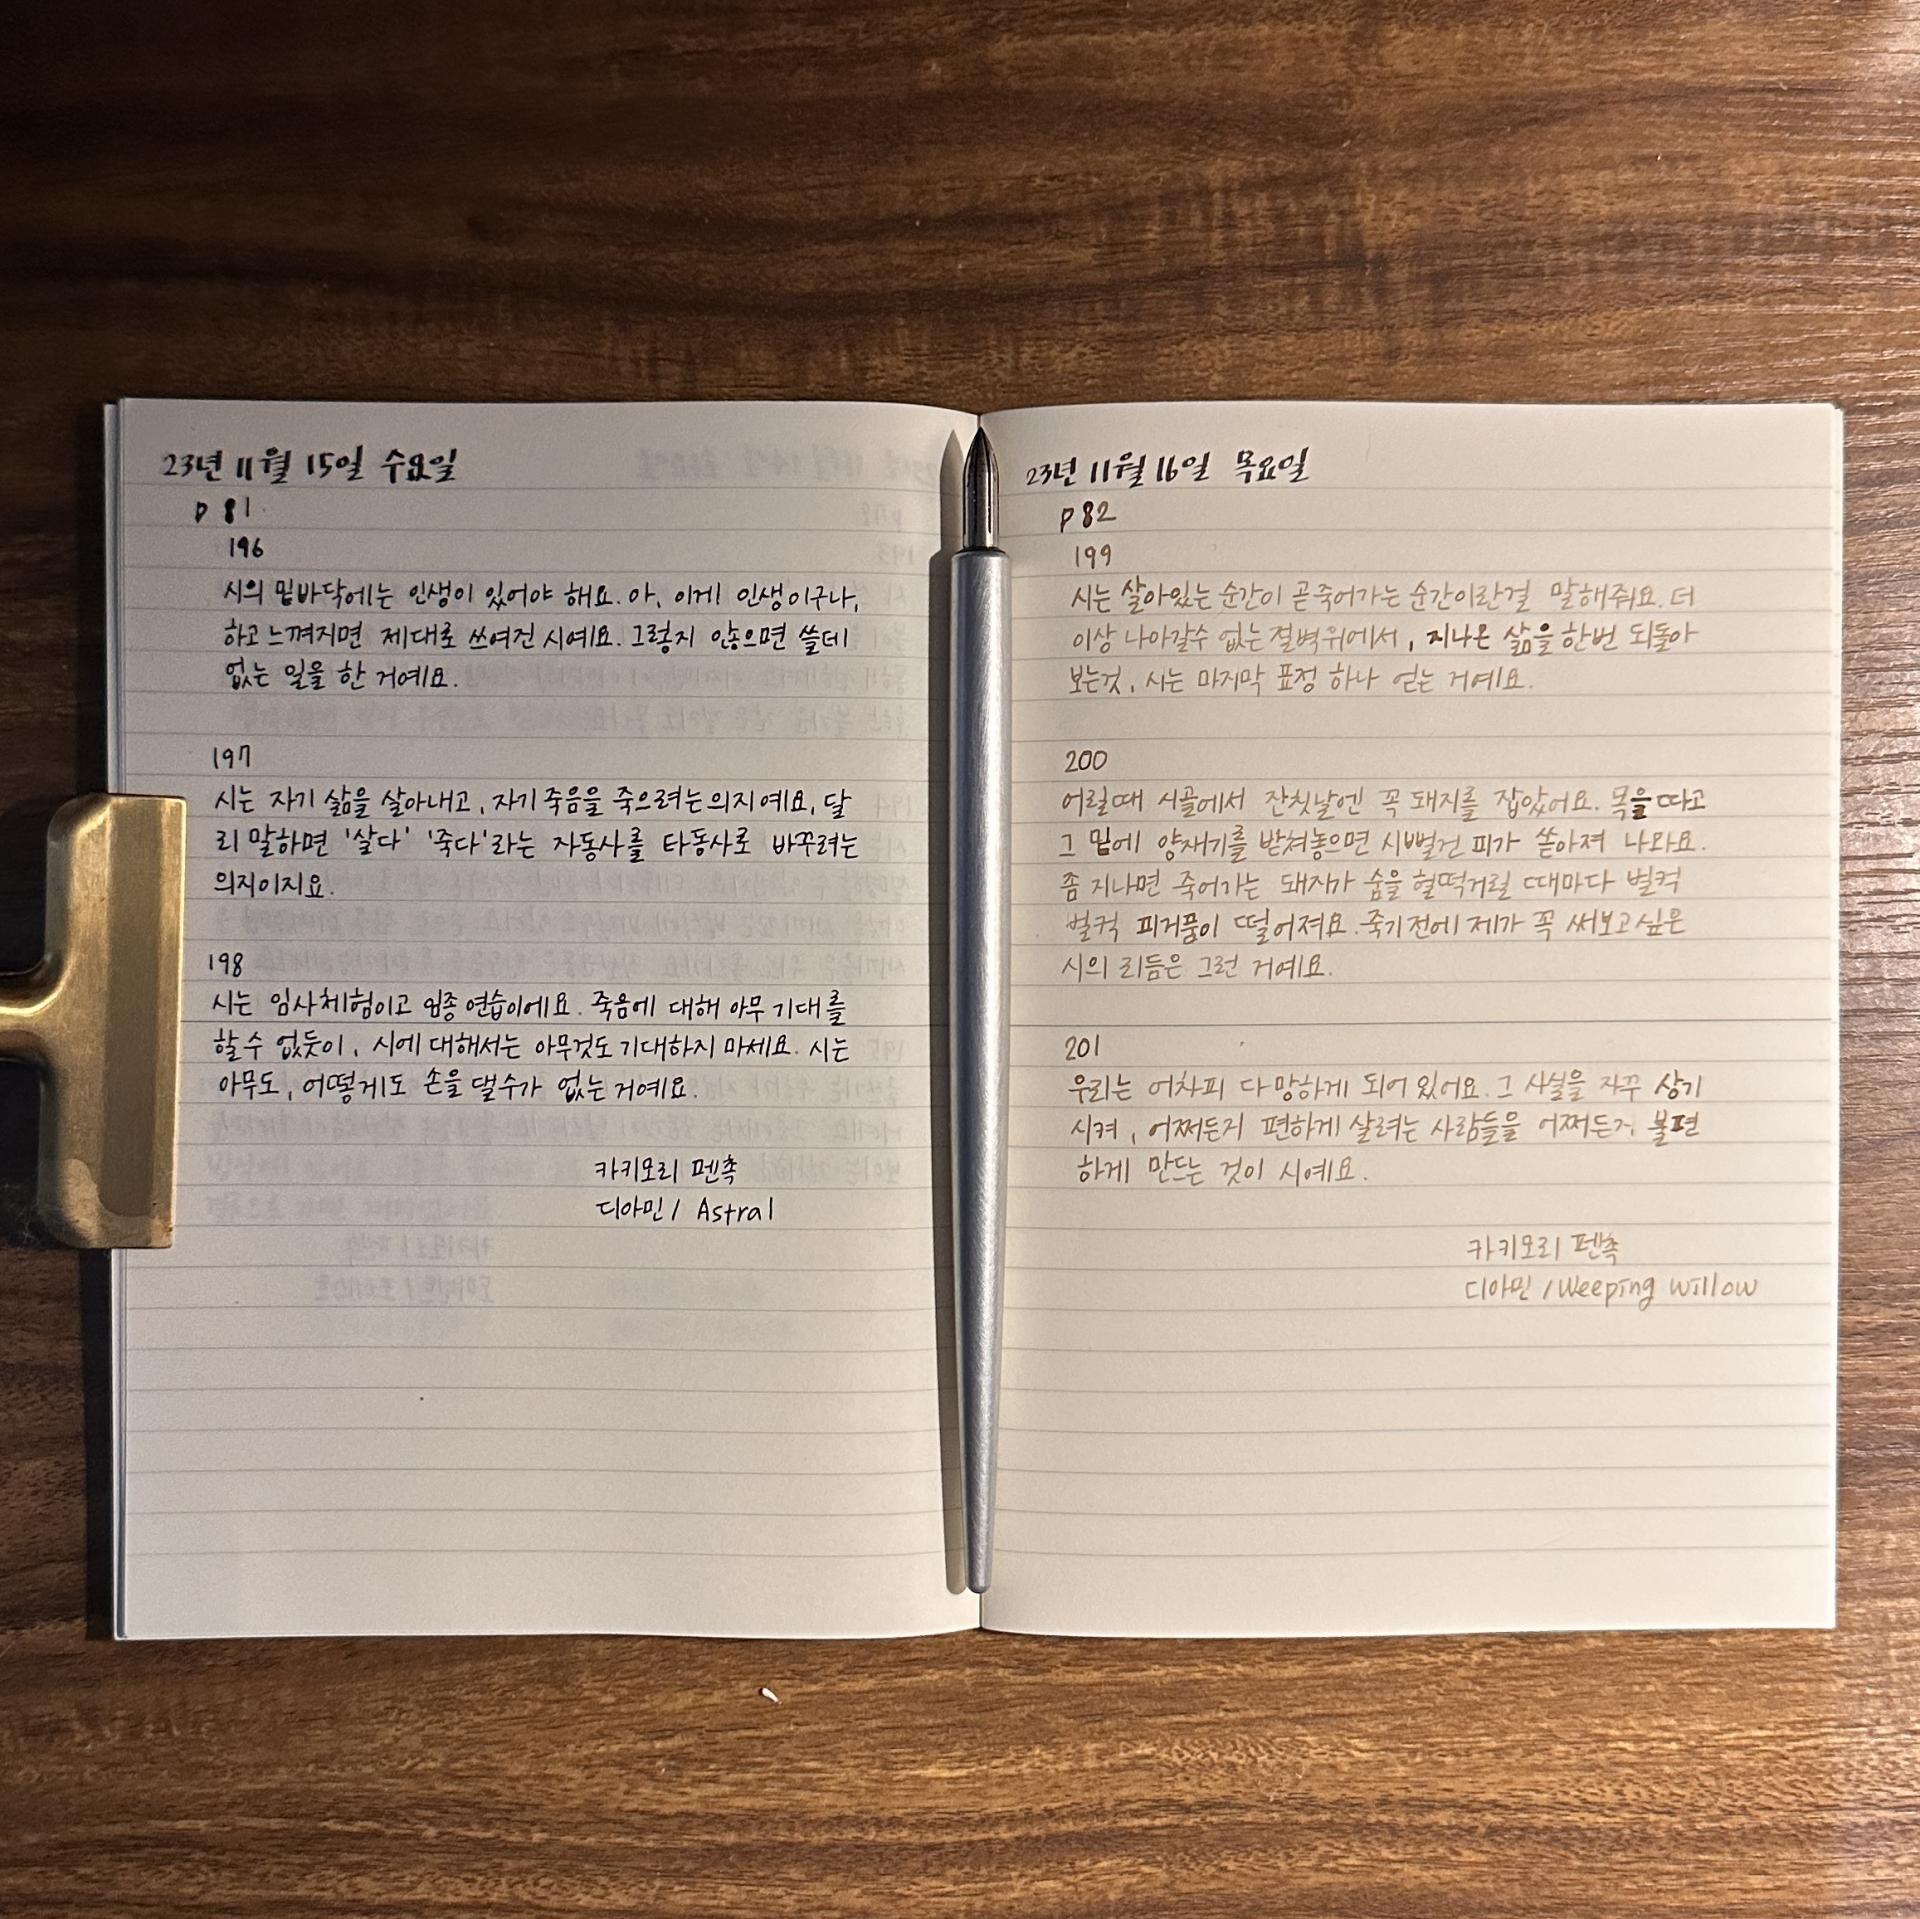 23년 11월 15일 수요일
p 81
196
시의 밑바닥에는 인생이 있어야 해요. 아, 이게 인생이구나,
하고 느껴지면 제대로 쓰여진 시예요. 그렇지 않으면 쓸데
없는 일을 한 거예요.
197
시는 자기 삶을 살아내고, 자기 죽음을 죽으려는 의지예요, 달
리 말하면 '살다' '죽다'라는 자동사를 타동사로 바꾸려는
의지이지요.
198
시는 임사체험이고 임종 연습이에요. 죽음에 대해 아무 기대를
할수 없듯이, 시에 대해서는 아무것도 기대하지 마세요. 시는
아무도, 어떻게도 손을 댈수가 없는 거예요.
카키모리 펜촉
디아민 / Astral
23년 11월 16일 목요일
p 82
199
시는 살아있는 순간이 곧 죽어가는 순간이란걸 말해줘요. 더
이상 나아갈수 없는 절벽위에서, 지나온 삶을 한번 되돌아
보는것, 시는 마지막 표정 하나 얻는 거예요.
200
어릴때 시골에서 잔칫날엔 꼭 돼지를 잡았어요. 목을 따고
그 밑에 양재기를 받쳐놓으면 시뻘건 피가 쏟아져 나와요.
좀 지나면 죽어가는 돼지가 숨을 헐떡거릴 때마다 벌컥
벌컥 피거품이 떨어져요. 죽기전에 제가 꼭 써보고싶은
시의 리듬은 그런 거예요.
201
우리는 어차피 다 망하게 되어 있어요. 그 사실을 자꾸 상기
시켜, 어쩌든지 편하게 살려는 사람들을 어쩌든지 불편
하게 만드는 것이 시예요.
카키모리 펜촉
디아민 / Weeping willow